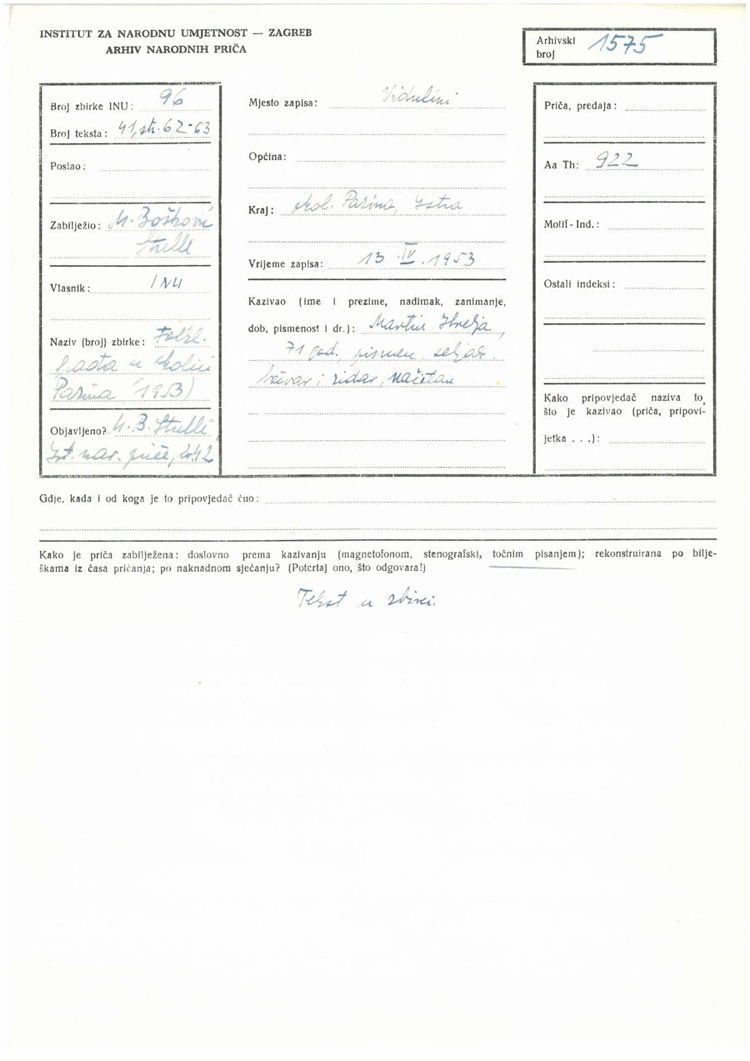 INSTITUT ZA NARODNU UMJETNOST — ZAGREB
ARHIV NARODNIH PRIČA
Arhivski broj 1575
Broj zbirke INU: 96
Broj teksta: 41, str. 62-63
Poslao:
Zabilježio: M. Bošković
Stulli
Vlasnik: INU
Naziv (broj) zbirke: Folkl.
građa u okolici
Pazina (1953)
Objavljeno? M. B. Stulli
Ist. nar. priče, br. 42
Mjesto zapisa: Vidulini
Općina:
Kraj: okol. Pazina, Istra
Vrijeme zapisa: 13. IV. 1953
Kazivao (ime i prezime, nadimak, zanimanje,
dob, pismenost i dr.): Martin
71 god. pismen, seljak,
i zidar, načitan
Priča, predaja:
Aa Th: 922
Motif - Ind.:
Ostali indeksi:
Kako pripovjedač naziva to,
što je kazivao (priča, pripovi-
jetka . . .):
Gdje, kada i od koga je to pripovjedač čuo:
Kako je priča zabilježena: doslovno prema kazivanju (magnetofonom, stenografski, točnim pisanjem); rekonstruirana po bilje-
škama iz časa pričanja; po naknadnom sjećanju? (Potcrtaj ono, što odgovara!)
Tekst u zbirci.